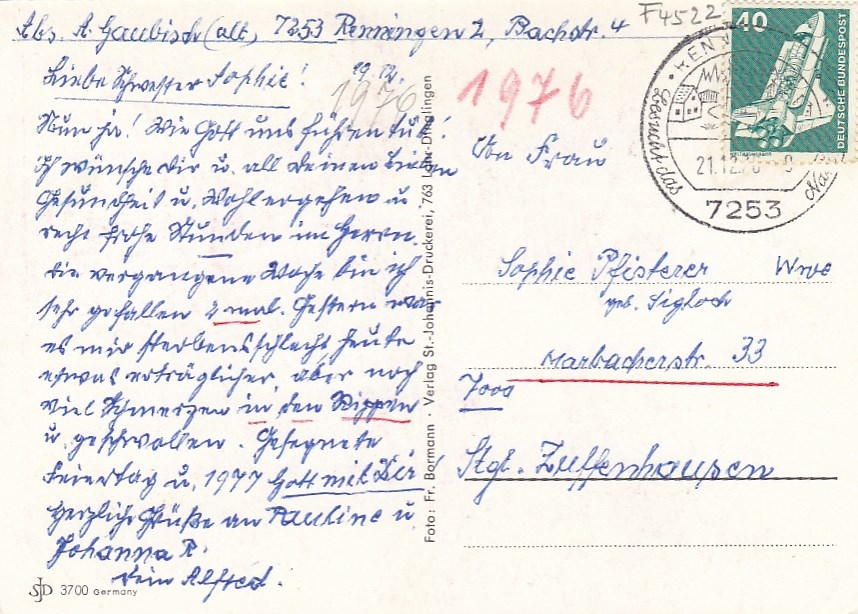 Abs. A. Gaubisch (alt), 7253 Renningen 2, Bachstr. 4
F4522
19.12.
1976
Liebe Schwester Sophie!
Nun ja! Wie Gott uns führen tut!
Ich wünsche Dir u. all Deinen Lieben
Gesundheit u. Wohlergehen u.
recht frohe Stunden im Herrn.
Die vergangene Woche bin ich
sehr gefallen 2 mal. Gestern war
es mir sterbensschlecht heute
etwas erträglicher, aber noch
viel Schmerzen in den Rippen
u. geschwollen. Gesegnete
Feiertag u. 1977 Gott mit Dir!
Herzliche Grüße an Pauline u.
Johanna R.
Dein Alfred.
SJD 3700 Germany
Foto: Fr. Bormann · Verlag St.-Johannis-Druckerei, 763 Lahr-Dinglingen
1976
40
DEUTSCHE BUNDESPOST
21.12.76
7253
An Frau
Sophie Pfisterer Wwe
geb. Sigloch
Marbacherstr. 33
7000
Stgt. Zuffenhausen